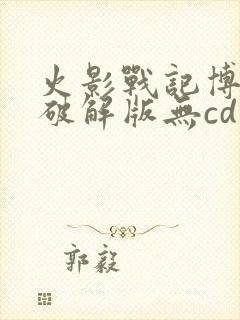 火影戰記博
破解版無cd
郭毅